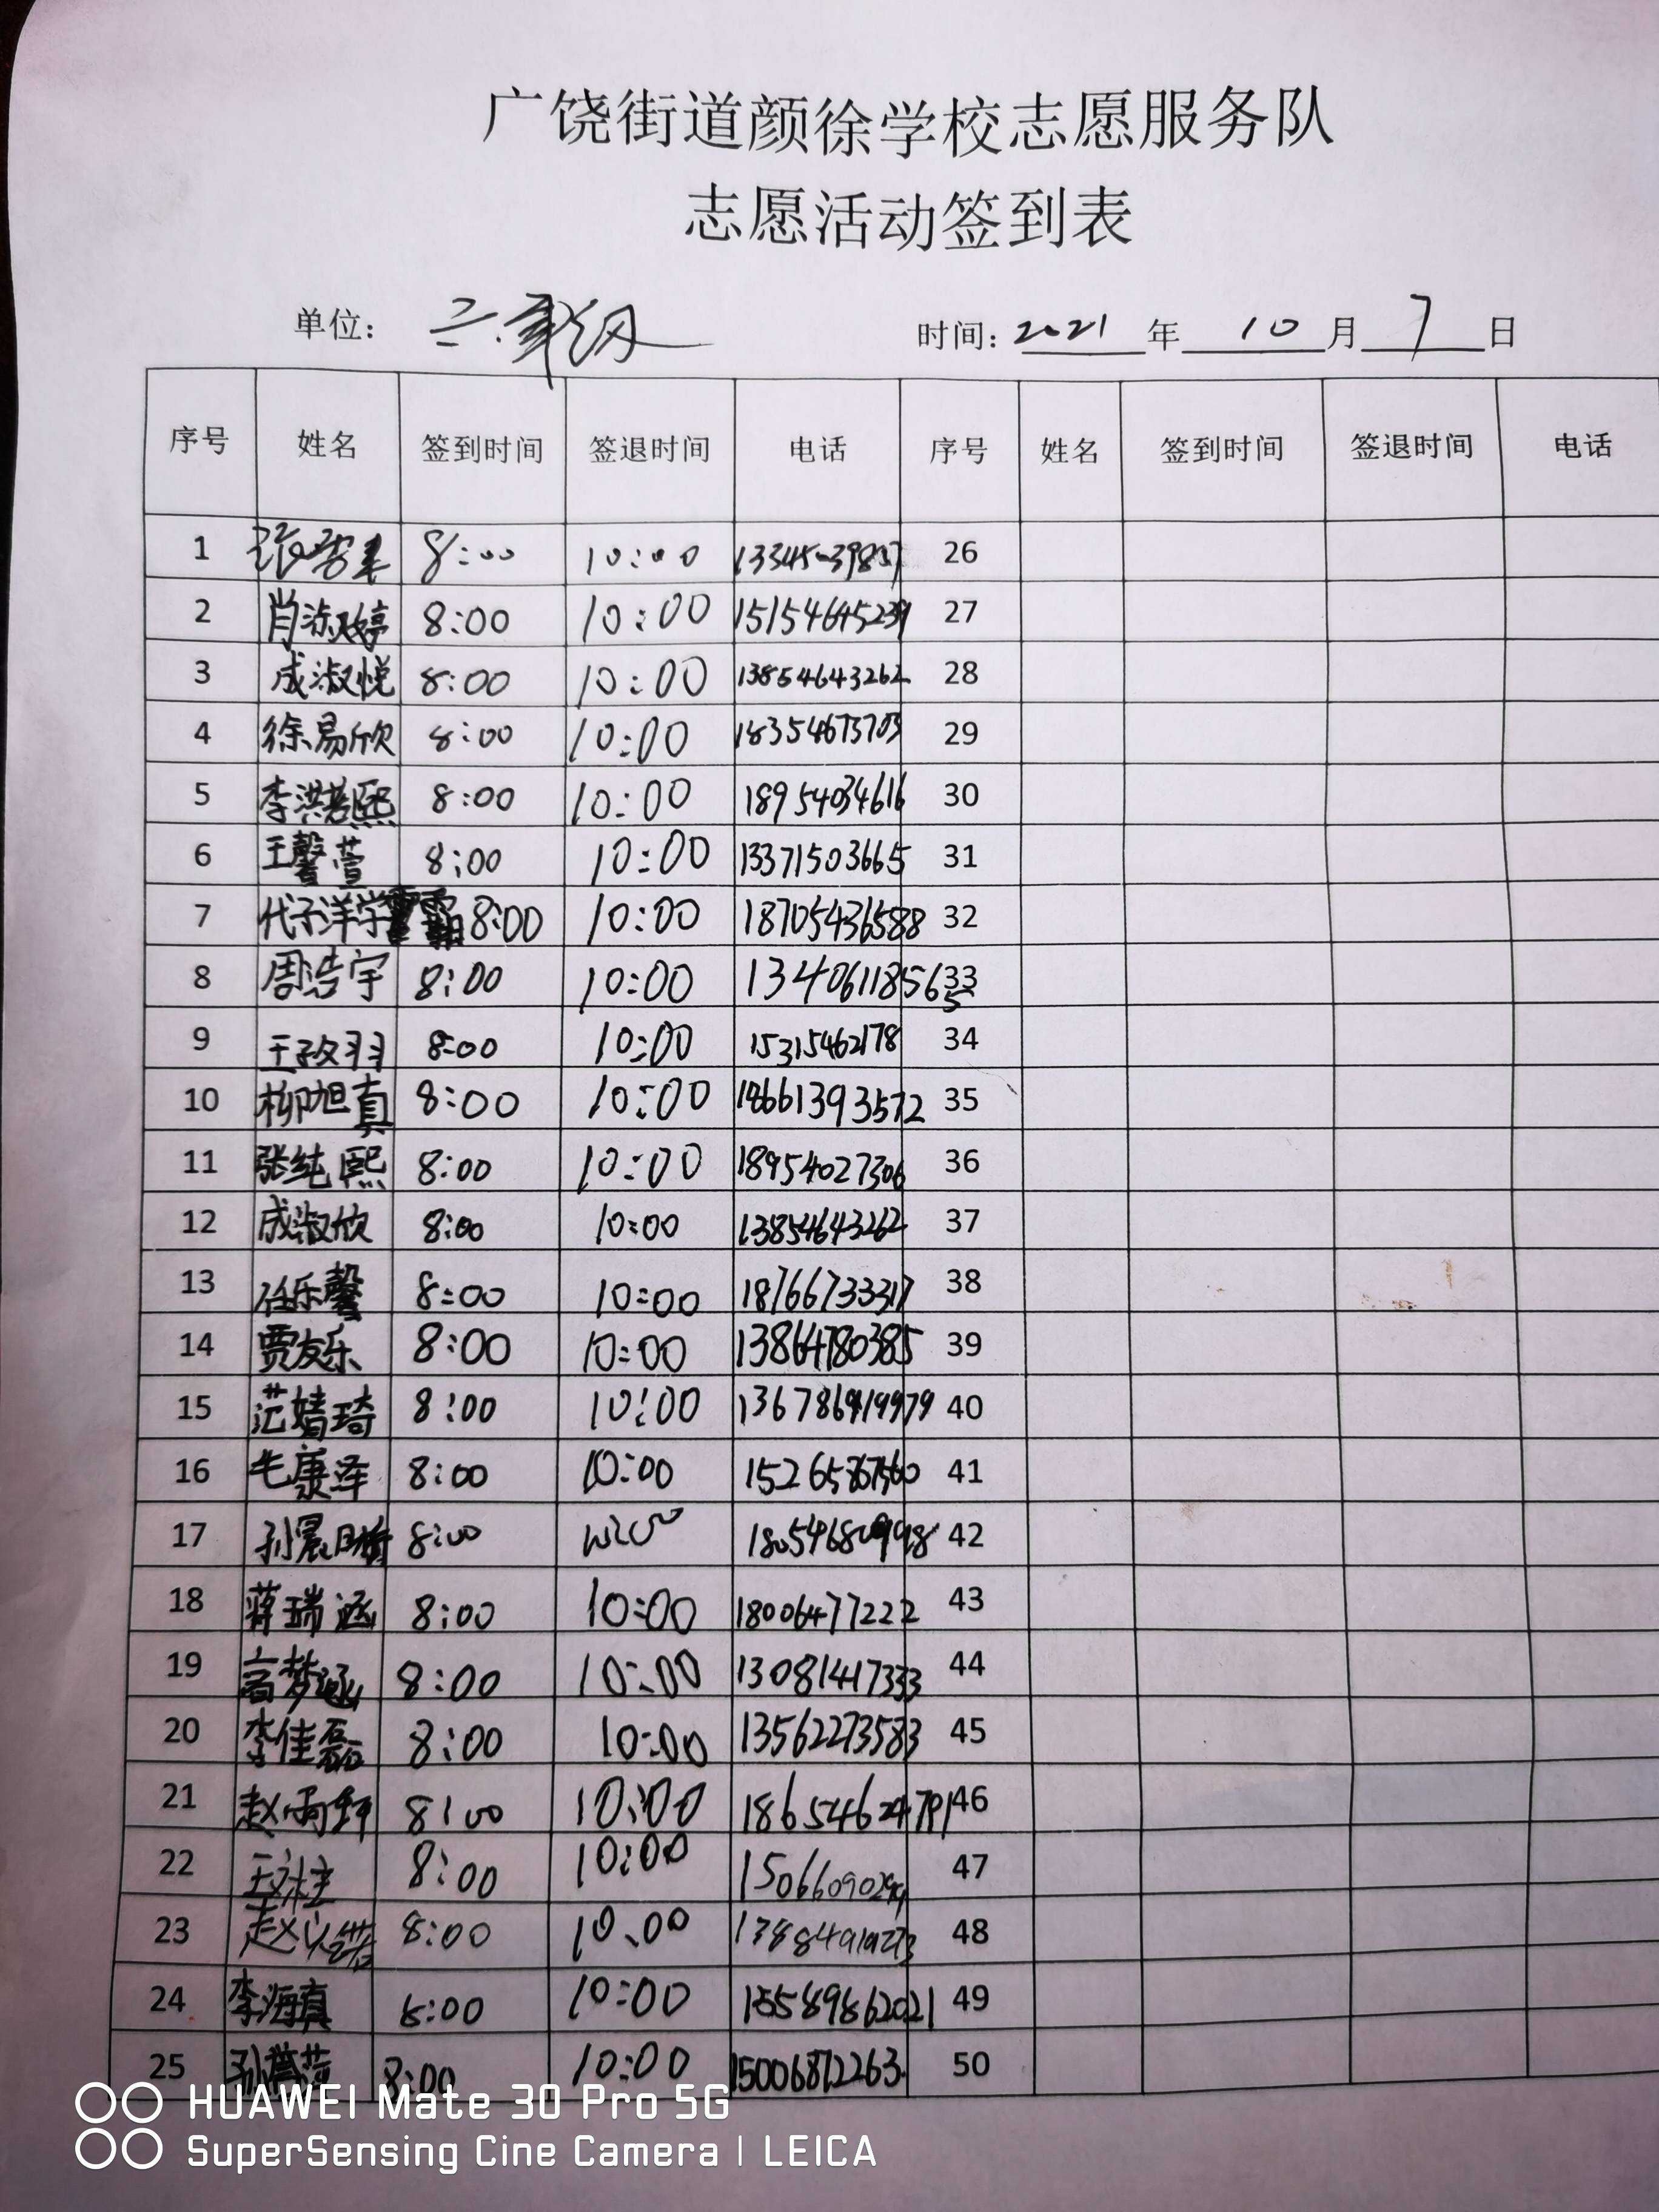 广饶街道颜徐学校志愿服务队
志愿活动签到表
单位: 时间: 2021 年 10 月 7 日
序号 姓名 签到时间 签退时间 电话 序号 姓名 签到时间 签退时间 电话
1 8:00 10:00 26
2 肖淑婷 8:00 10:00 27
3 成淑悦 8:00 10:00 13854643262 28
4 徐易欣 8:00 10:00 18354673703 29
5 李洪熙 8:00 10:00 18954034616 30
6 王馨萱 8:00 10:00 13371503665 31
7 代子洋 8:00 10:00 18705436588 32
8 周浩宇 8:00 10:00 13406118565 33
9 8:00 10:00 15315462178 34
10 柳旭真 8:00 10:00 18661393572 35
11 张纯熙 8:00 10:00 18954027306 36
12 成淑欣 8:00 10:00 13854643262 37
13 任乐馨 8:00 10:00 18766733317 38
14 贾友乐 8:00 10:00 13864780385 39
15 范婧琦 8:00 10:00 40
16 毛康泽 8:00 10:00 41
17 8:00 42
18 蒋瑞涵 8:00 10:00 18006477222 43
19 高梦涵 8:00 10:00 13081417333 44
20 李佳磊 8:00 10:00 13562273583 45
21 8:00 10:00 46
22 8:00 10:00 47
23 8:00 10:00 48
24 李海真 8:00 10:00 15589862021 49
25 8:00 10:00 15006872263 50
HUAWEI Mate 30 Pro 5G
SuperSensing Cine Camera | LEICA